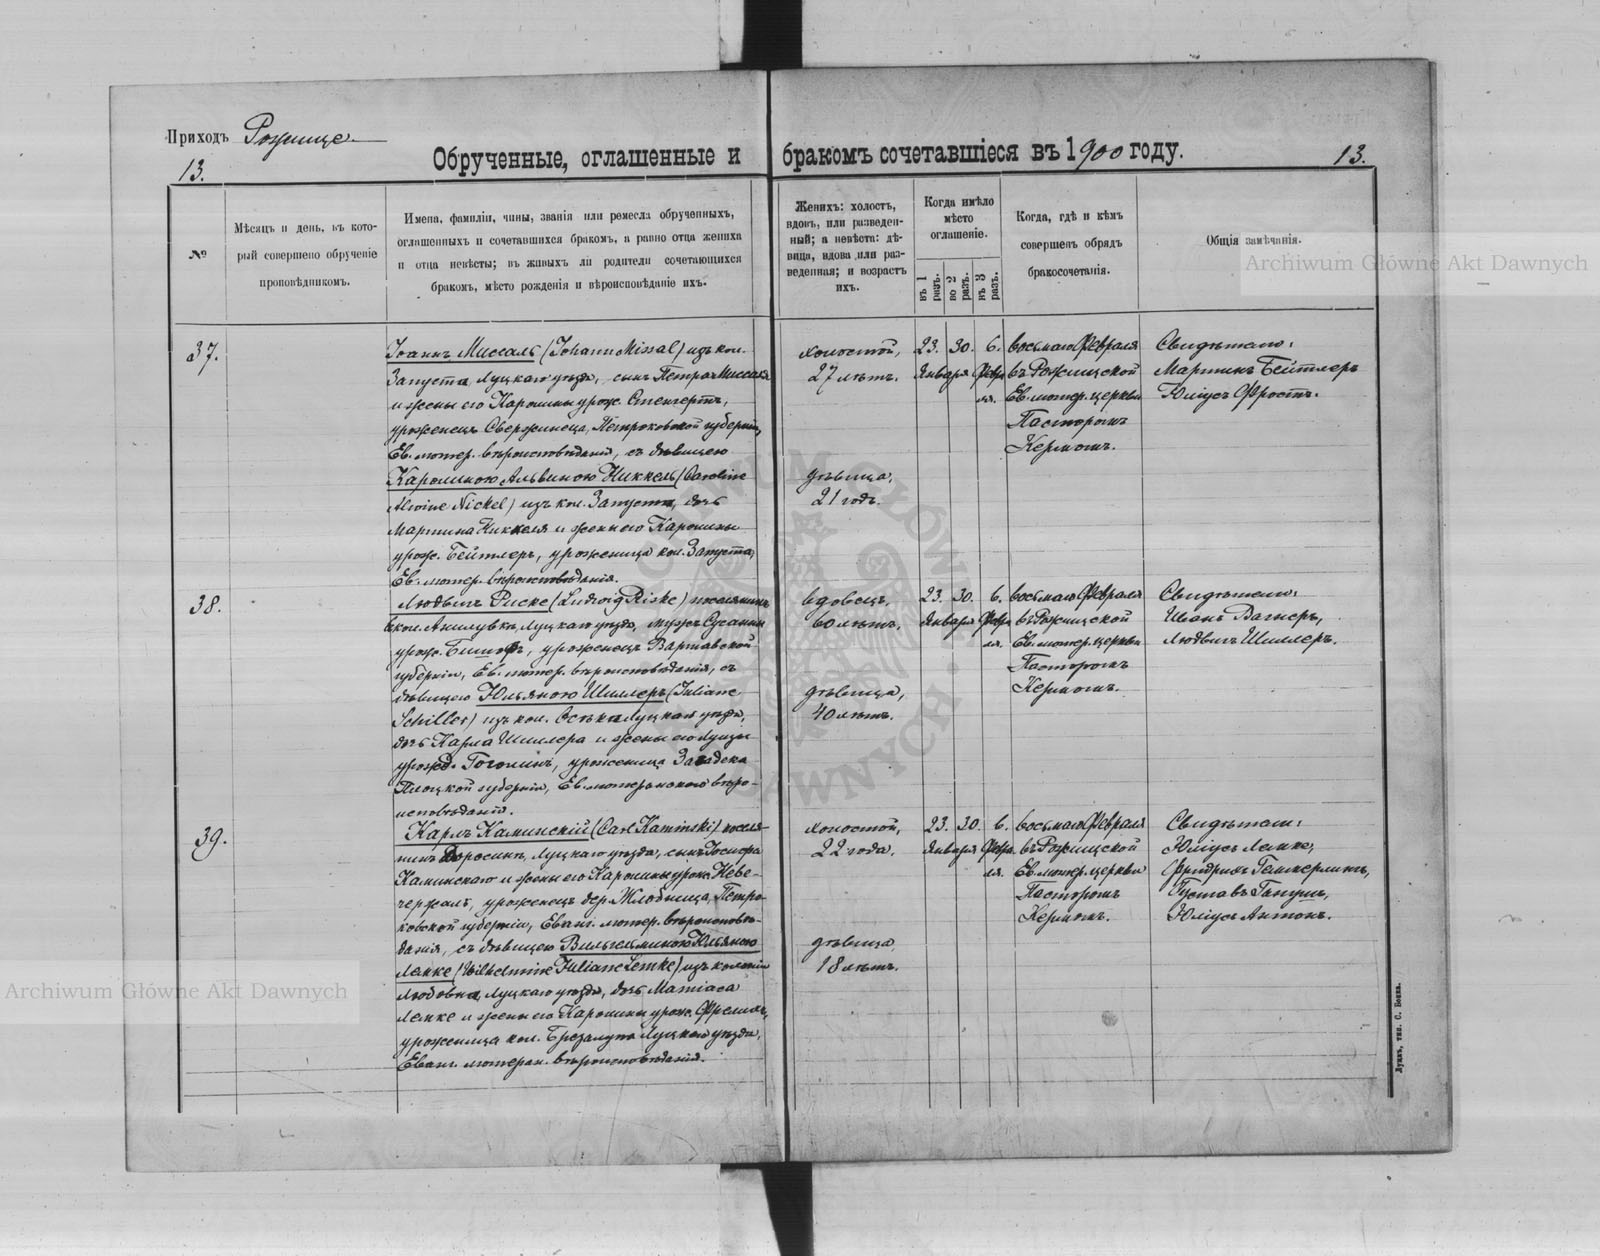 Приходъ Рожище
13.
Обрученные, оглашенные и бракомъ сочетавшіеся въ 1900 году.
13.
№
Мѣсяцъ и день, въ кото-
рый совершено обрученіе
проповѣдникомъ.
Имена, фамиліи, чины, званія или ремесла обрученныхъ,
оглашенныхъ и сочетавшихся бракомъ, а равно отца жениха
и отца невѣсты; въ живыхъ ли родители сочетающихся
бракомъ, мѣсто рожденія и вѣроисповѣданіе ихъ.
Женихъ: холостъ,
вдовъ, или разведен-
ный; а невѣста: дѣ-
вица, вдова или раз-
веденная; и возрастъ
ихъ.
Когда имѣло
мѣсто
оглашеніе.
въ 1 разъ.
во 2 разъ.
въ 3 разъ.
Когда, гдѣ и кѣмъ
совершенъ обрядъ
бракосочетанія.
Общія замѣчанія.
Archiwum Główne Akt Dawnych
37.
Іоаннъ Миссаль (Johann Missal) изъ кол.
Запуста Луцкаго уѣзда, сынъ Петра Миссаля
и жены его Каролины урож. Стенгертъ,
уроженецъ Свержинеца, Петроковской губерніи,
Ев. лютер. вѣроисповѣданія, съ дѣвицею
Каролиною Альвиною Никкель (Caroline
Alwine Nickel) изъ кол. Запуста, дочь
Мартина Никкеля и жены его Каролины
урож. Бейтлеръ, уроженица кол. Запуста,
Ев. лютер. вѣроисповѣданія.
холостой,
27 лѣтъ.
дѣвица,
21 годъ.
23. 30. 6.
Января Февра
ля.
восьмаго Февраля
въ Рожищской
Ев. лютер. церкви
Пасторомъ
Кермомъ.
Свидѣтели:
Мартинъ Бейтлеръ
Юліусъ Фростъ.
38.
Людвигъ Риске (Ludwig Riske) поселянинъ
кол. Акилувка, Луцкаго уѣзда, мужъ Сусанны
урож. уроженецъ Варшавской
губерніи, Ев. лютер. вѣроисповѣданія, съ
дѣвицею Юльяною Шиллеръ (Juliane
Schiller) изъ кол. Осѣка Луцкаго уѣзда,
дочь Карла Шиллера и жены его Луизы
урожд. Гоголинъ, уроженица
Плоцкой губерніи, Ев. лютеранскаго вѣро-
исповѣданія.
вдовецъ,
60 лѣтъ.
дѣвица,
40 лѣтъ.
23. 30. 6.
Января Февра
ля.
восьмаго Февраля
въ Рожищской
Ев. лютер. церкви
Пасторомъ
Кермомъ.
Свидѣтели:
Иванъ Вагнеръ,
Людвигъ Шиллеръ.
39.
Карлъ Каминскій (Carl Kaminski) поселя-
нинъ Доросинъ, Луцкаго уѣзда, сынъ Іосифа
Каминскаго и жены его Каролины урож. Неве-
чержалъ, уроженецъ дер. Жлобница, Петро-
ковской губерніи, Еванг. лютер. вѣроисповѣ-
данія, съ дѣвицею Вильгельминою Юльяною
Лемке (Wilhelmine Juliane Lemke) изъ колоніи
Любовна, Луцкаго уѣзда, дочь Матіаса
Лемке и жены его Каролины урож.
уроженица кол. Луцкаго уѣзда,
Еванг. лютеран. вѣроисповѣданія.
холостой,
22 года.
дѣвица
18 лѣтъ.
23. 30. 6.
Января Февра
ля.
восьмаго Февраля
въ Рожищской
Ев. лютер. церкви
Пасторомъ
Кермомъ.
Свидѣтели:
Юліусъ Лемке,
Фридрихъ
Густавъ
Юліусъ Антонъ.
Archiwum Główne Akt Dawnych
Луцкъ, тип. С. Бокка.